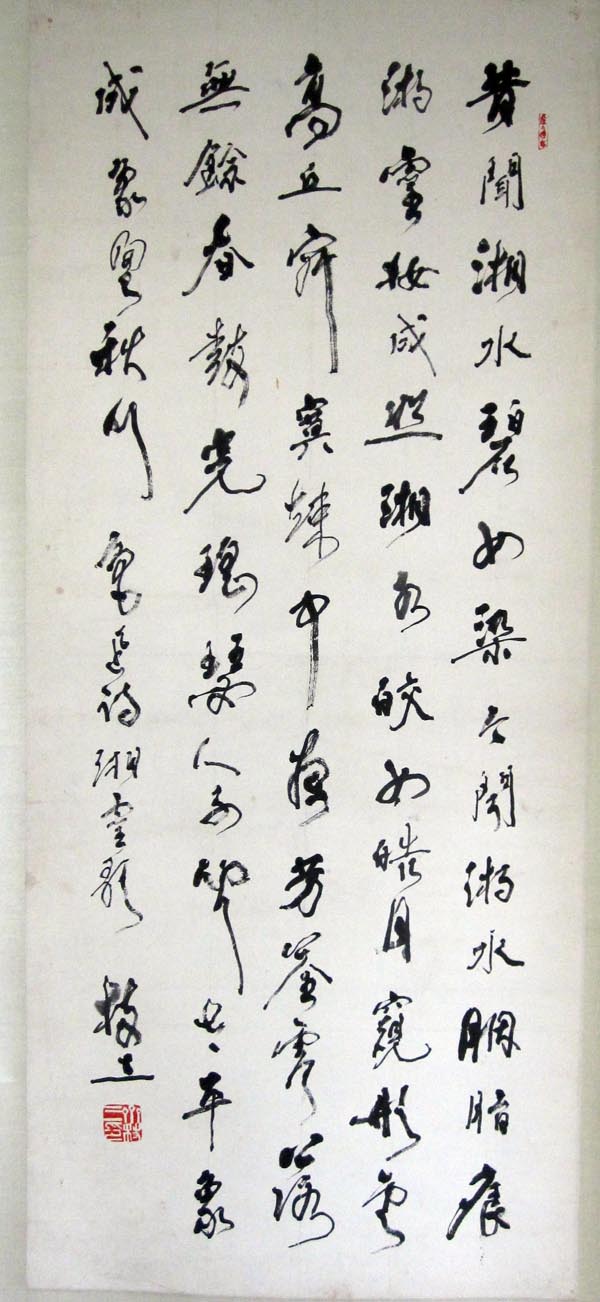 昔聞湘水碧如染今聞湘水胭脂痕
湘靈妝成照湘水皎如皓月窺彤雲
高丘寂寞竦中夜芳荃零落
無餘春鼓完瑤瑟人不聞太平象
成象盈秋門 魯迅詩湘靈歌